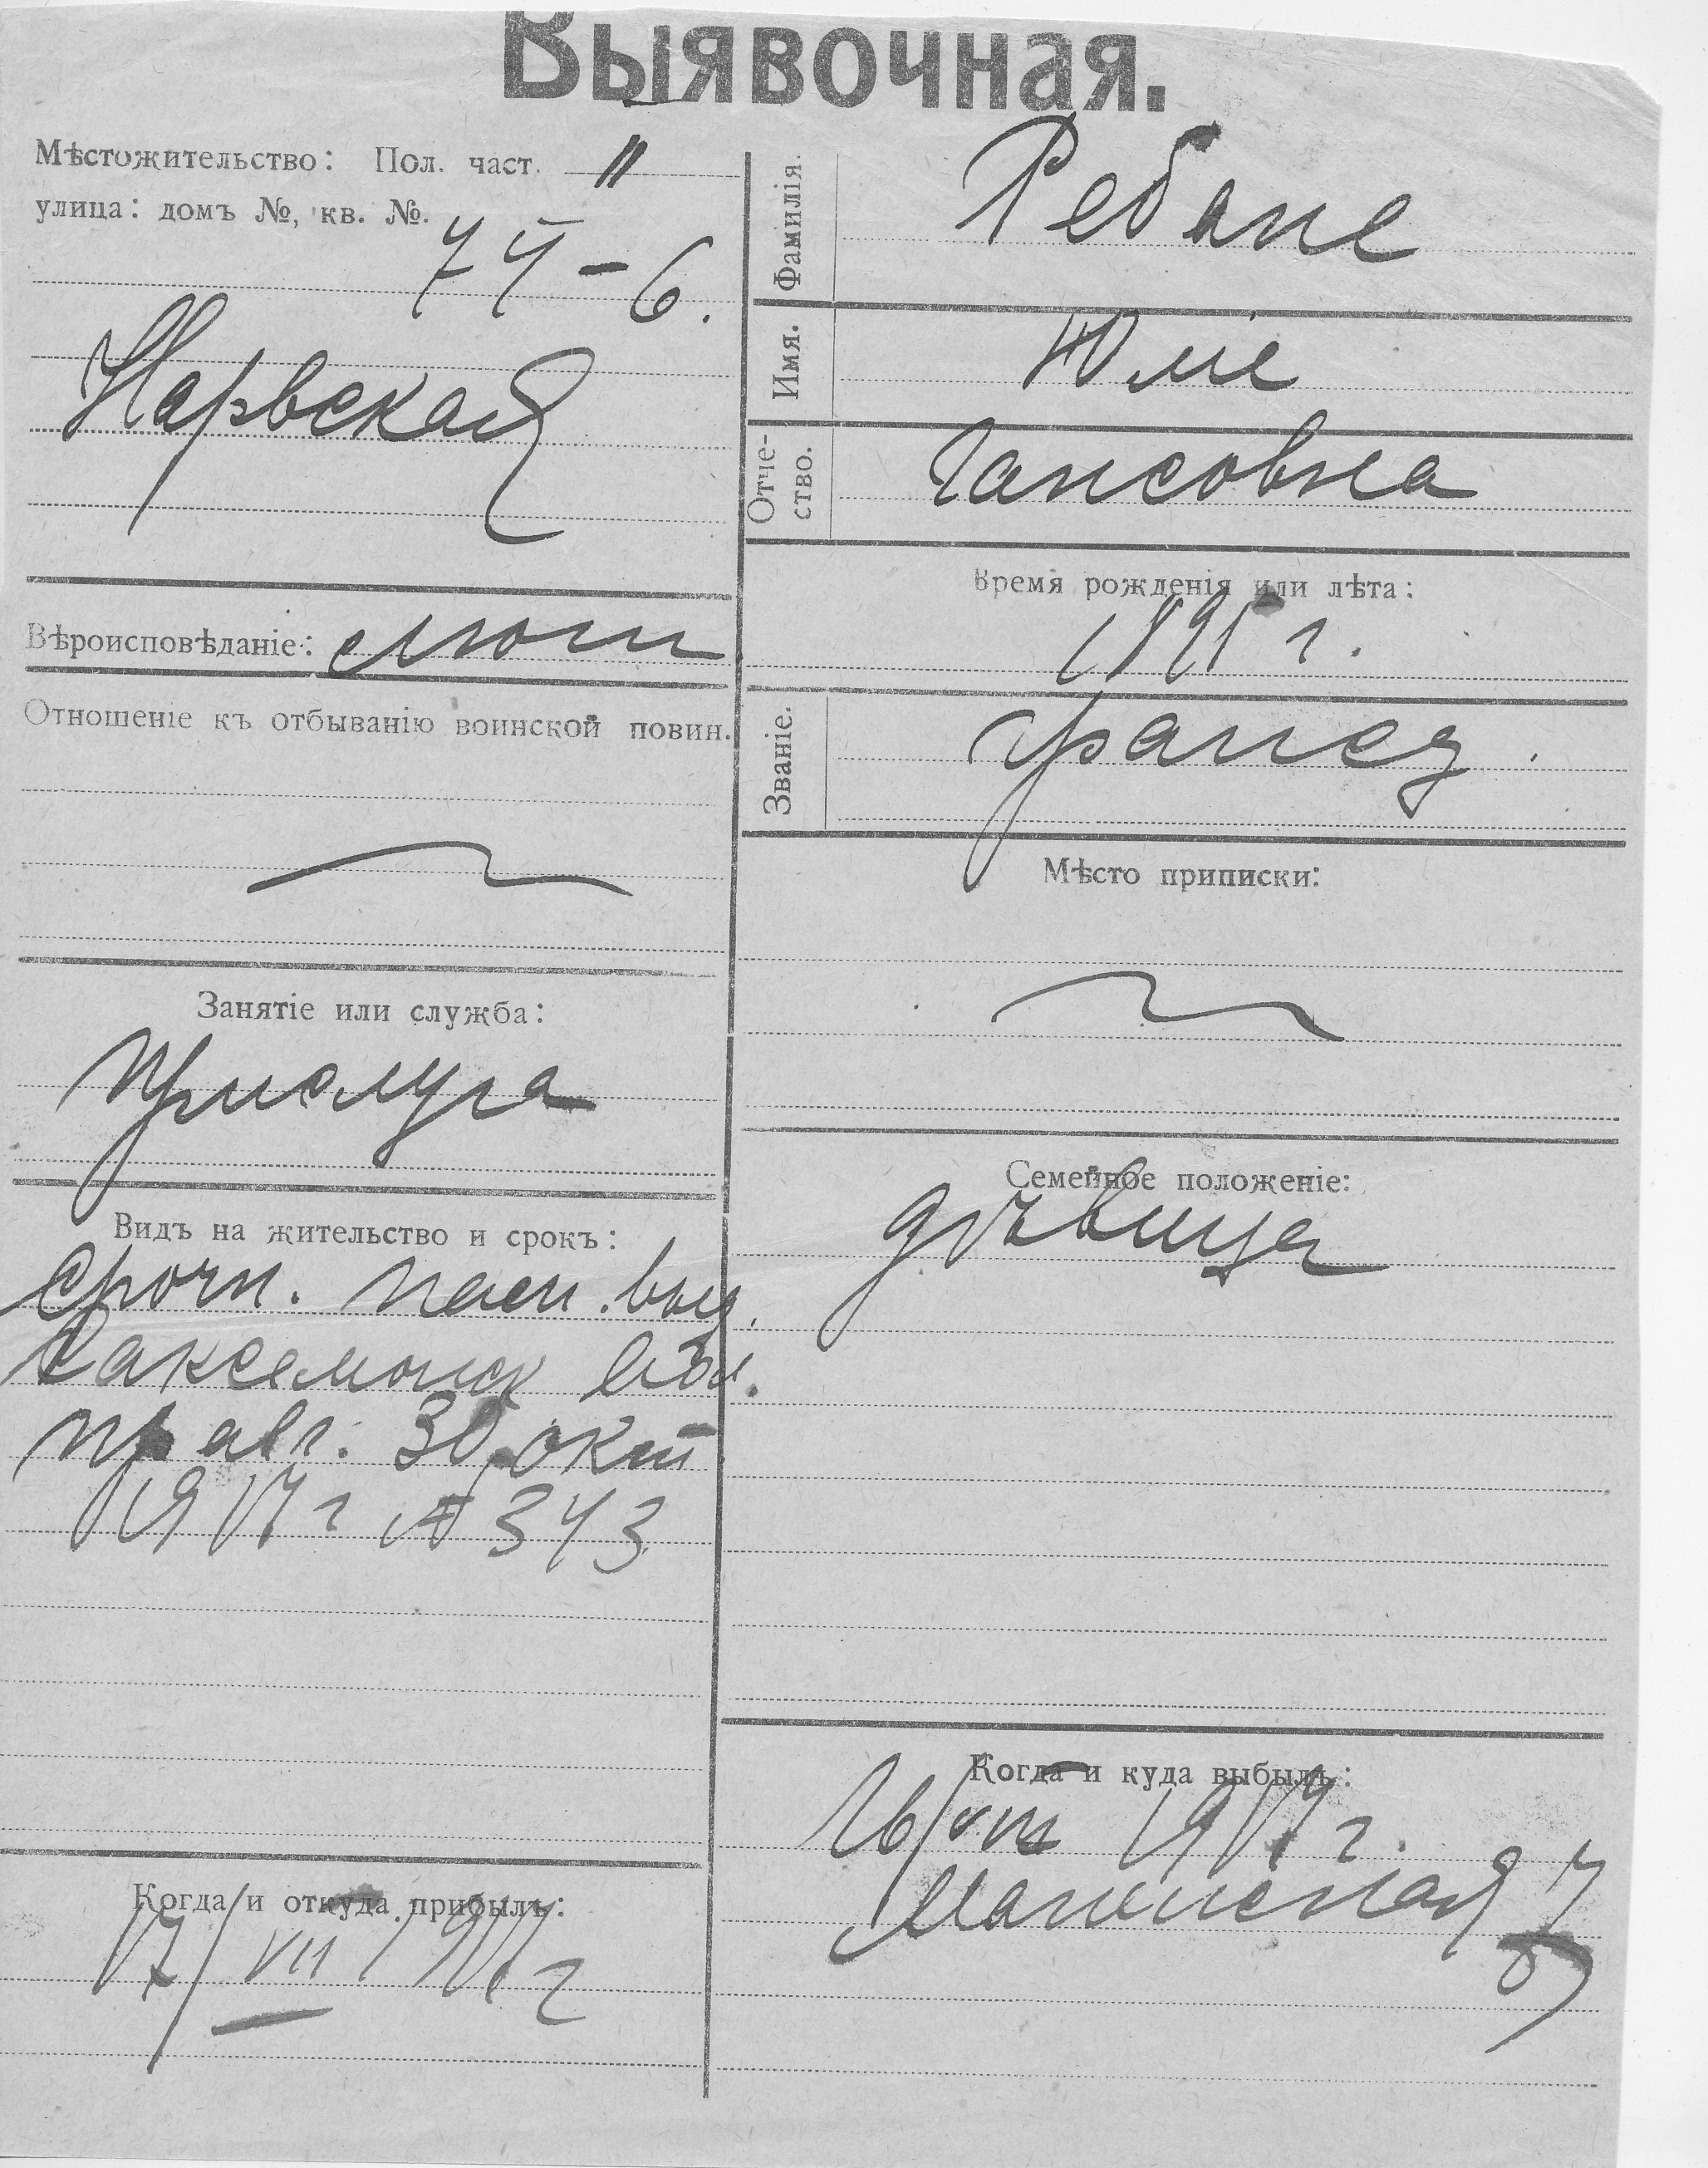 Выявочная.
Мѣстожительство: Пол. част. II
улица: домъ №, кв. №.
74-6.
Нарвская
Вѣроисповѣданіе: лют
Отношеніе къ отбыванію воинской повин.
Занятіе или служба:
Прислуга
Видъ на жительство и срокъ:
Срочн. пасп. выд.
вол.
прав. 30 окт
1917 г № 343
Когда и откуда прибылъ:
17/VII
Фамилія. Ребане
Имя. Юлie
Отче-
ство. Гансовна
Время рожденія или лѣта:
г.
Званіе. гражд.
Мѣсто приписки:
Семейное положеніе:
дѣвица
Когда и куда выбылъ:
16/VIII 1919 г.